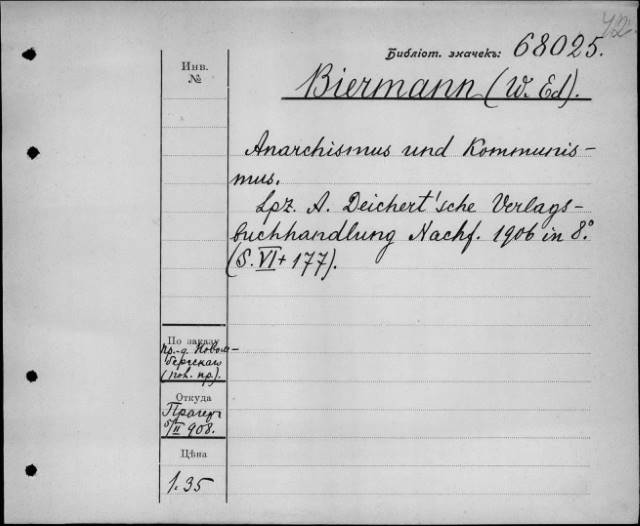 42.
Библіот. значекъ: 68025.
Инв.
№
Biermann (W. Ed).
Anarchismus und Kommunis-
mus.
Lpz. A. Deichert'sche Verlags-
buchhandlung Nachf. 1906 in 8.°
(S. VI + 177).
По заказу
пр.-д. Новом-
бергскаго
(пол. пр.).
Откуда
Прагеръ
5/II 908.
Цѣна
1.35